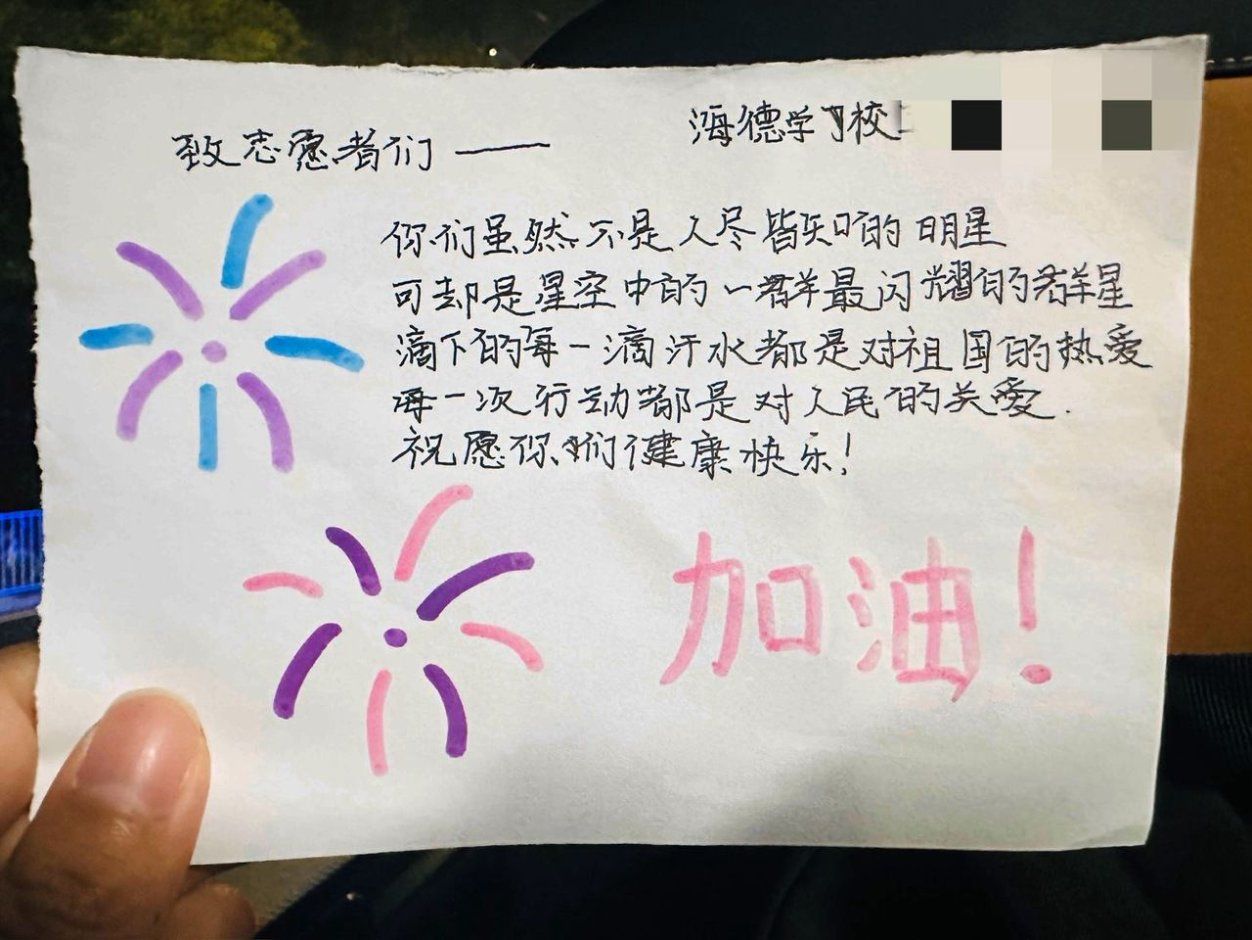 致志愿者们——
海德学校
你们虽然不是人尽皆知的明星
可却是星空中的一群最闪耀的群星
滴下的每一滴汗水都是对祖国的热爱
每一次行动都是对人民的关爱.
祝愿你们健康快乐!
加油!